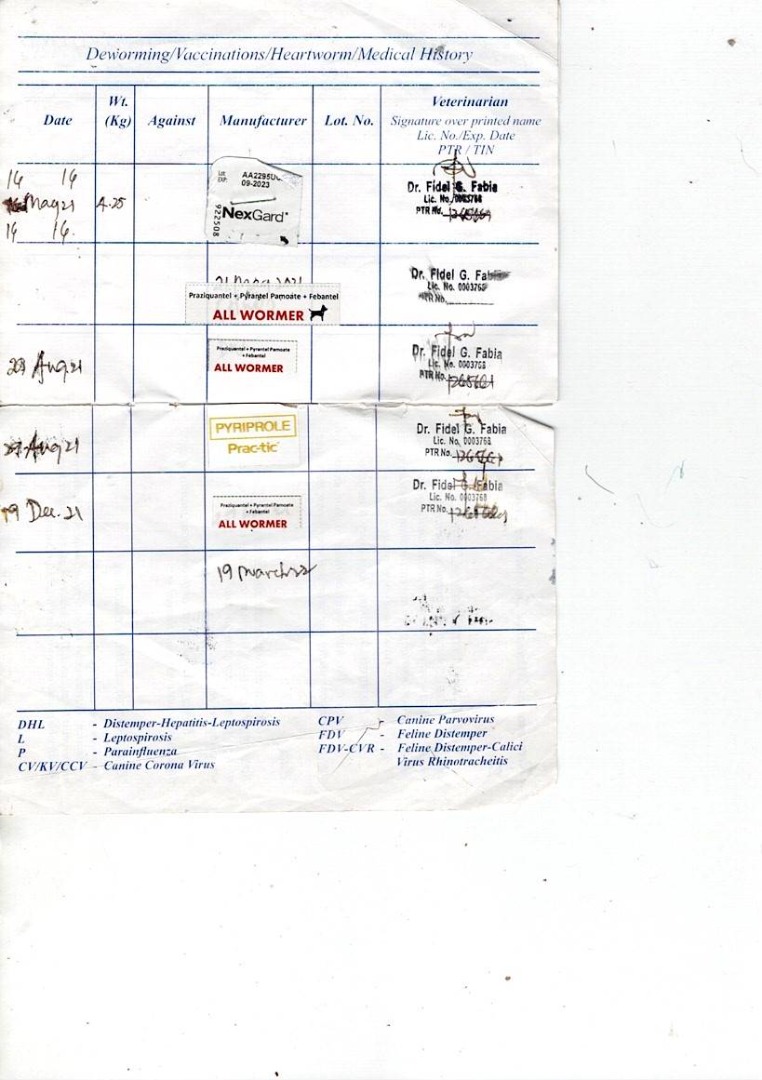 Deworming/Vaccinations/Heartworm/Medical History
Date
Wt.
(Kg)
Against
Manufacturer
Lot. No.
Veterinarian
Signature over printed name
Lic. No./Exp. Date
PTR / TIN
14 14
May21
14 14
4.25
LOT
EXP
AA2295
09-2023
NexGard
922508
Dr. Fidel G. Fabia
Lic. No. 0003768
PTR No.
Praziquantel + Pyrantel Pamoate + Febantel
ALL WORMER
Dr. Fidel G. Fabia
Lic. No. 0003768
PTR No.
Aug 21
Praziquantel + Pyrantel Pamoate
+ Febantel
ALL WORMER
Dr. Fidel G. Fabia
Lic. No. 0003768
PTR No.
Aug 21
PYRIPROLE
Prac-tic
Dr. Fidel G. Fabia
Lic. No. 0003768
PTR No.
19 Dec. 21
Praziquantel + Pyrantel Pamoate
+ Febantel
ALL WORMER
Dr. Fidel G. Fabia
Lic. No. 0003768
PTR No.
19 March 22
DHL - Distemper-Hepatitis-Leptospirosis
L - Leptospirosis
P - Parainfluenza
CV/KV/CCV - Canine Corona Virus
CPV - Canine Parvovirus
FDV - Feline Distemper
FDV-CVR - Feline Distemper-Calici
Virus Rhinotracheitis